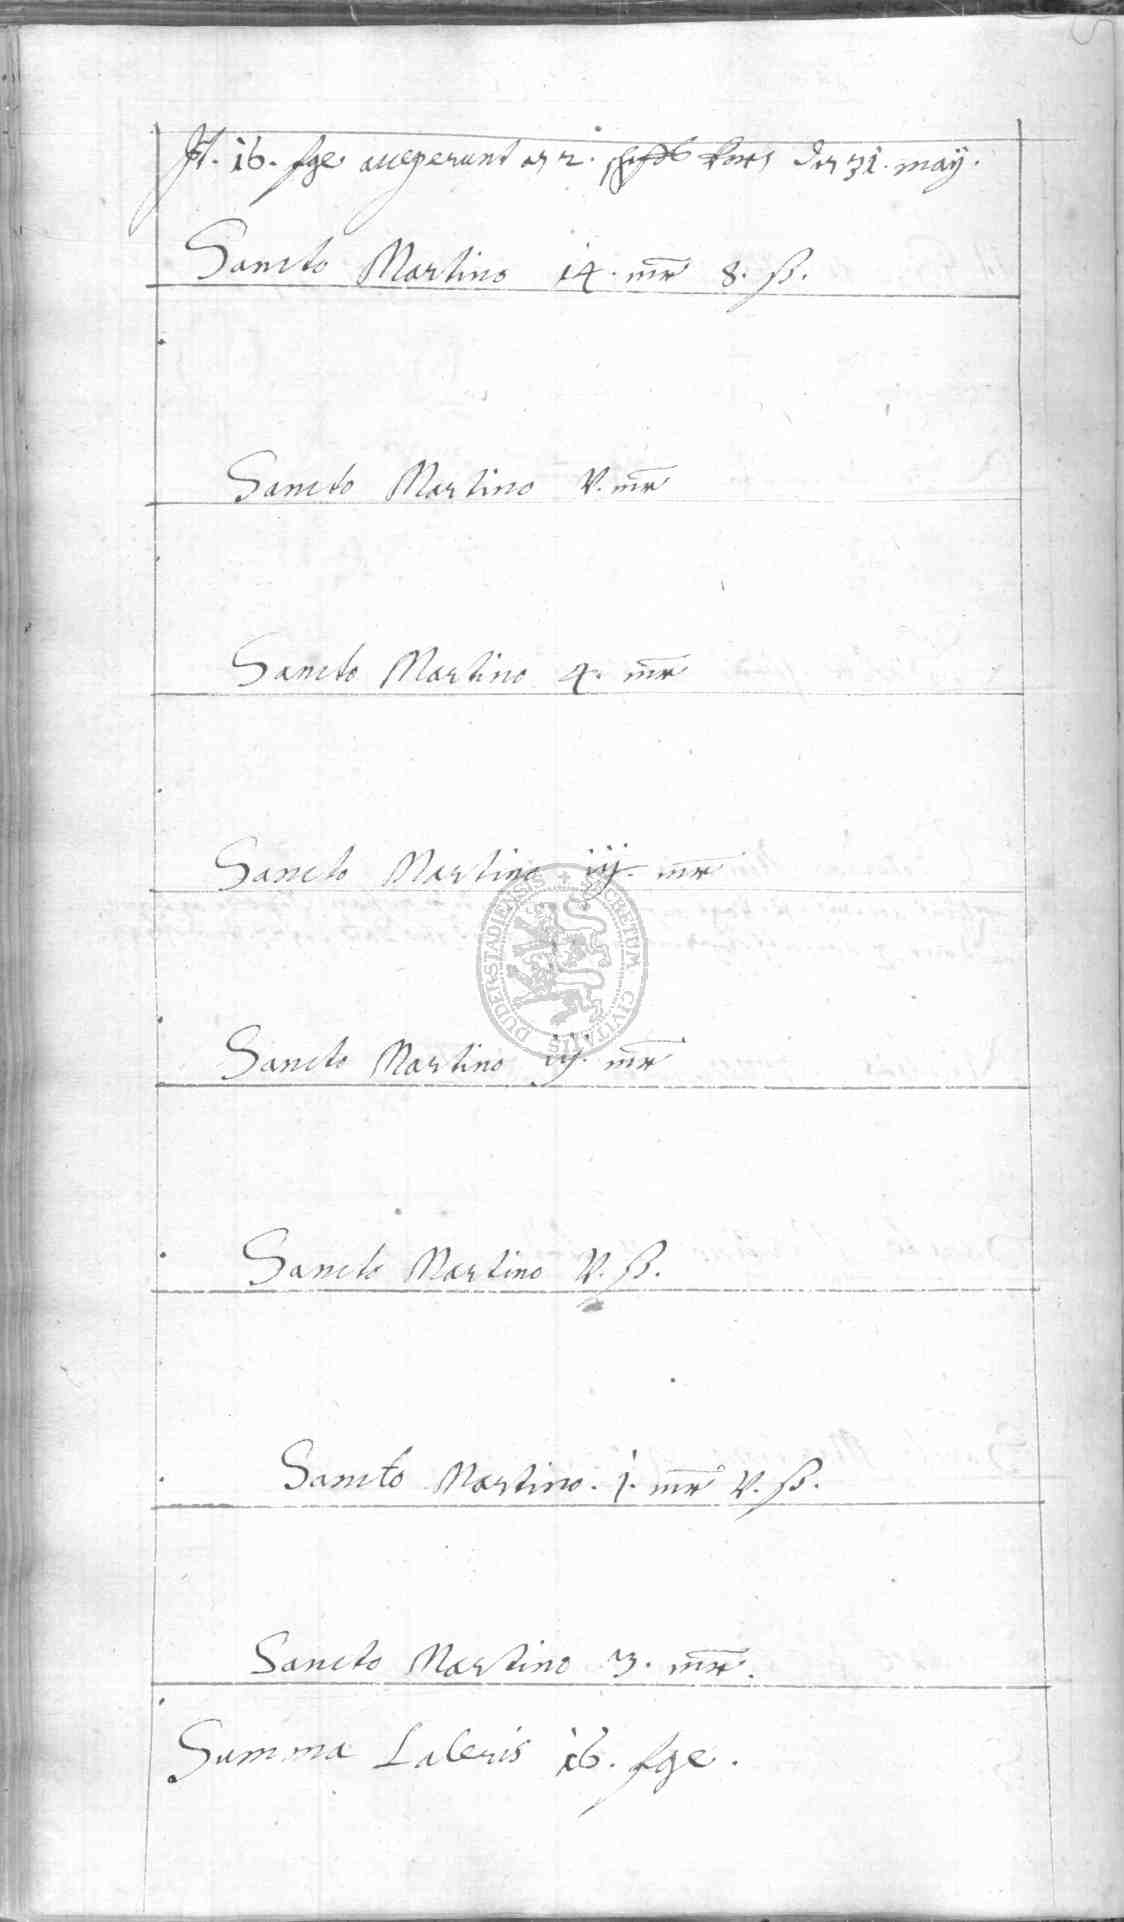 It. 16. fge acceperunt 2. den 31. maÿ.
Sancto Martino 14. mr 8. ß.
Sancto Martino v. mr
Sancto Martino 4. mr
Sancto Martino iij. mr
Sancto Martino iij. mr
Sancto Martino v. ß.
Sancto Martino. j. mr v. ß.
Sancto Martino 3. mr.
Summa Lateris 16. fge.
DUDERSTADIENSIS SECRETUM CIVITATIS